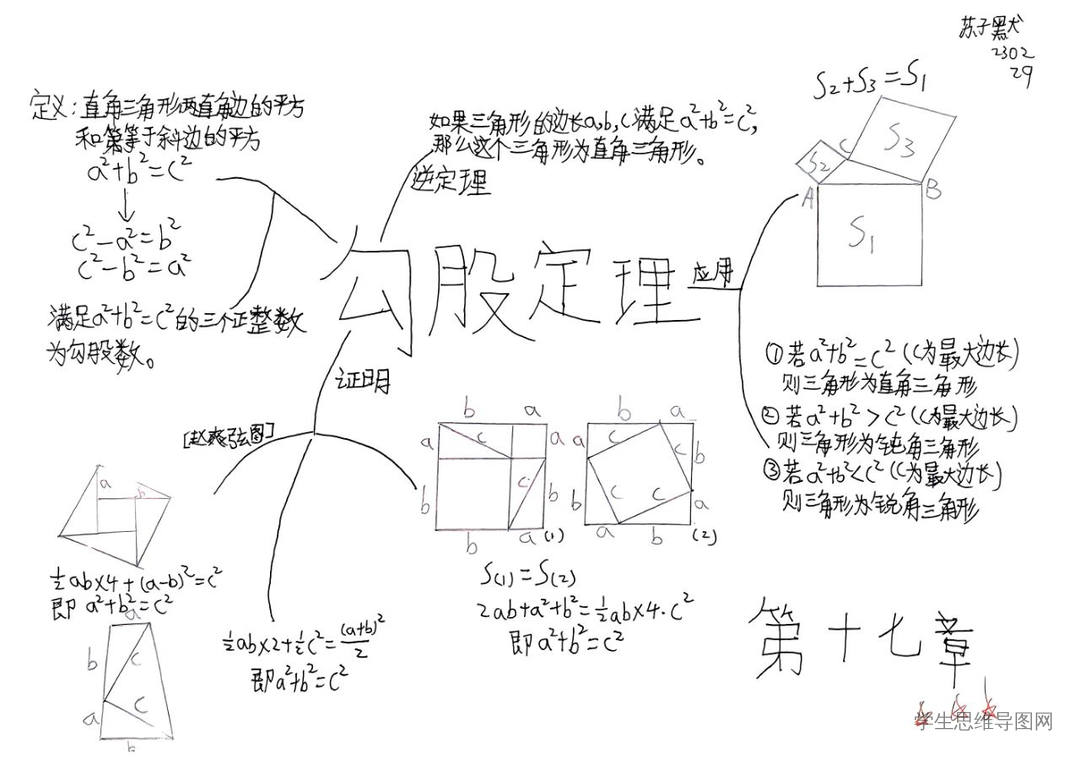 苏子墨犬
2302
29
定义:直角三角形两直角边的平方
和等于斜边的平方
a²+b²=c²
c²-a²=b²
c²-b²=a²
满足a²+b²=c²的三个正整数
为勾股数。
如果三角形的边长a,b,c满足a²+b²=c²,
那么这个三角形为直角三角形。
逆定理
勾股定理
应用
S₂+S₃=S₁
S₂
C
S₃
A
B
S₁
①若a²+b²=c²(c为最大边长)
则三角形为直角三角形
②若a²+b²>c²(c为最大边长)
则三角形为钝角三角形
③若a²+b²<c²(c为最大边长)
则三角形为锐角三角形
证明
[赵爽弦图]
a
b
½ab×4+(a-b)²=c²
即 a²+b²=c²
a
b
c
c
a
b
½ab×2+½c²=(a+b)²/2
即a²+b²=c²
b a
a c a
c
b b
b a (1)
b a
a c c b
b c c a
a b (2)
S(1)=S(2)
2ab+a²+b²=½ab×4·c²
即a²+b²=c²
第十七章
学生思维导图网